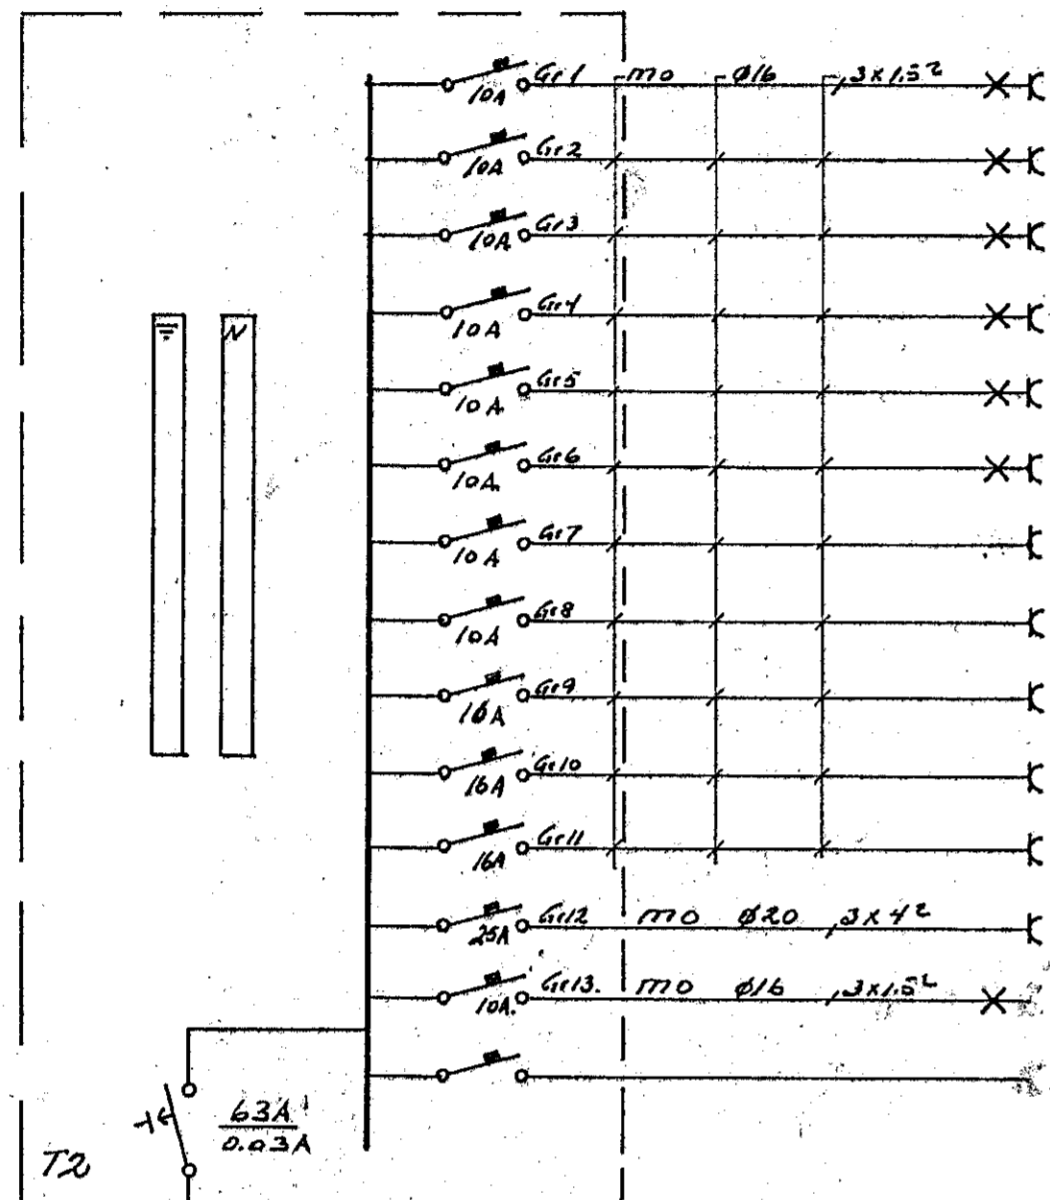 Gr1 mo ø16 3x1.5²
10A
Gr2
10A
Gr3
10A
N
Gr4
10A
Gr5
10A.
Gr6
10A.
Gr7
10A
Gr8
10A
Gr9
16A
Gr10
16A
Gr11
16A
Gr12 mo ø20 3x4²
25A
Gr13. mo ø16 3x1.5²
10A.
63A
0.03A
T2